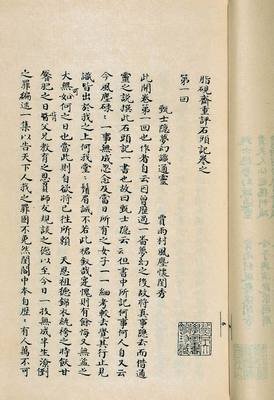 脂硯齋重評石頭記卷之
第一回
甄士隱夢幻識通靈　賈雨村風塵懷閨秀
此開卷第一回也作者自云因曾歷過一番夢幻之後故將真事隱去而借通
靈之說撰此石頭記一書也故曰甄士隱云云但書中所記何事何人自又云
今風塵碌々一事無成忽念及當日所有之女子一一細考較去覺其行止見
識皆出於我之上何我堂々鬚眉誠不若此裙釵哉實愧則有餘悔又無益之
大無可如何之日也當此則自欲將已往所賴　天恩祖德錦衣紈袴之時飫甘
饜肥之日背父兄教育之恩負師友規談之德以至今日一技無成半生潦倒
之罪編述一集以告天下人我之罪固不免然閨閣中本自歷々有人萬不可